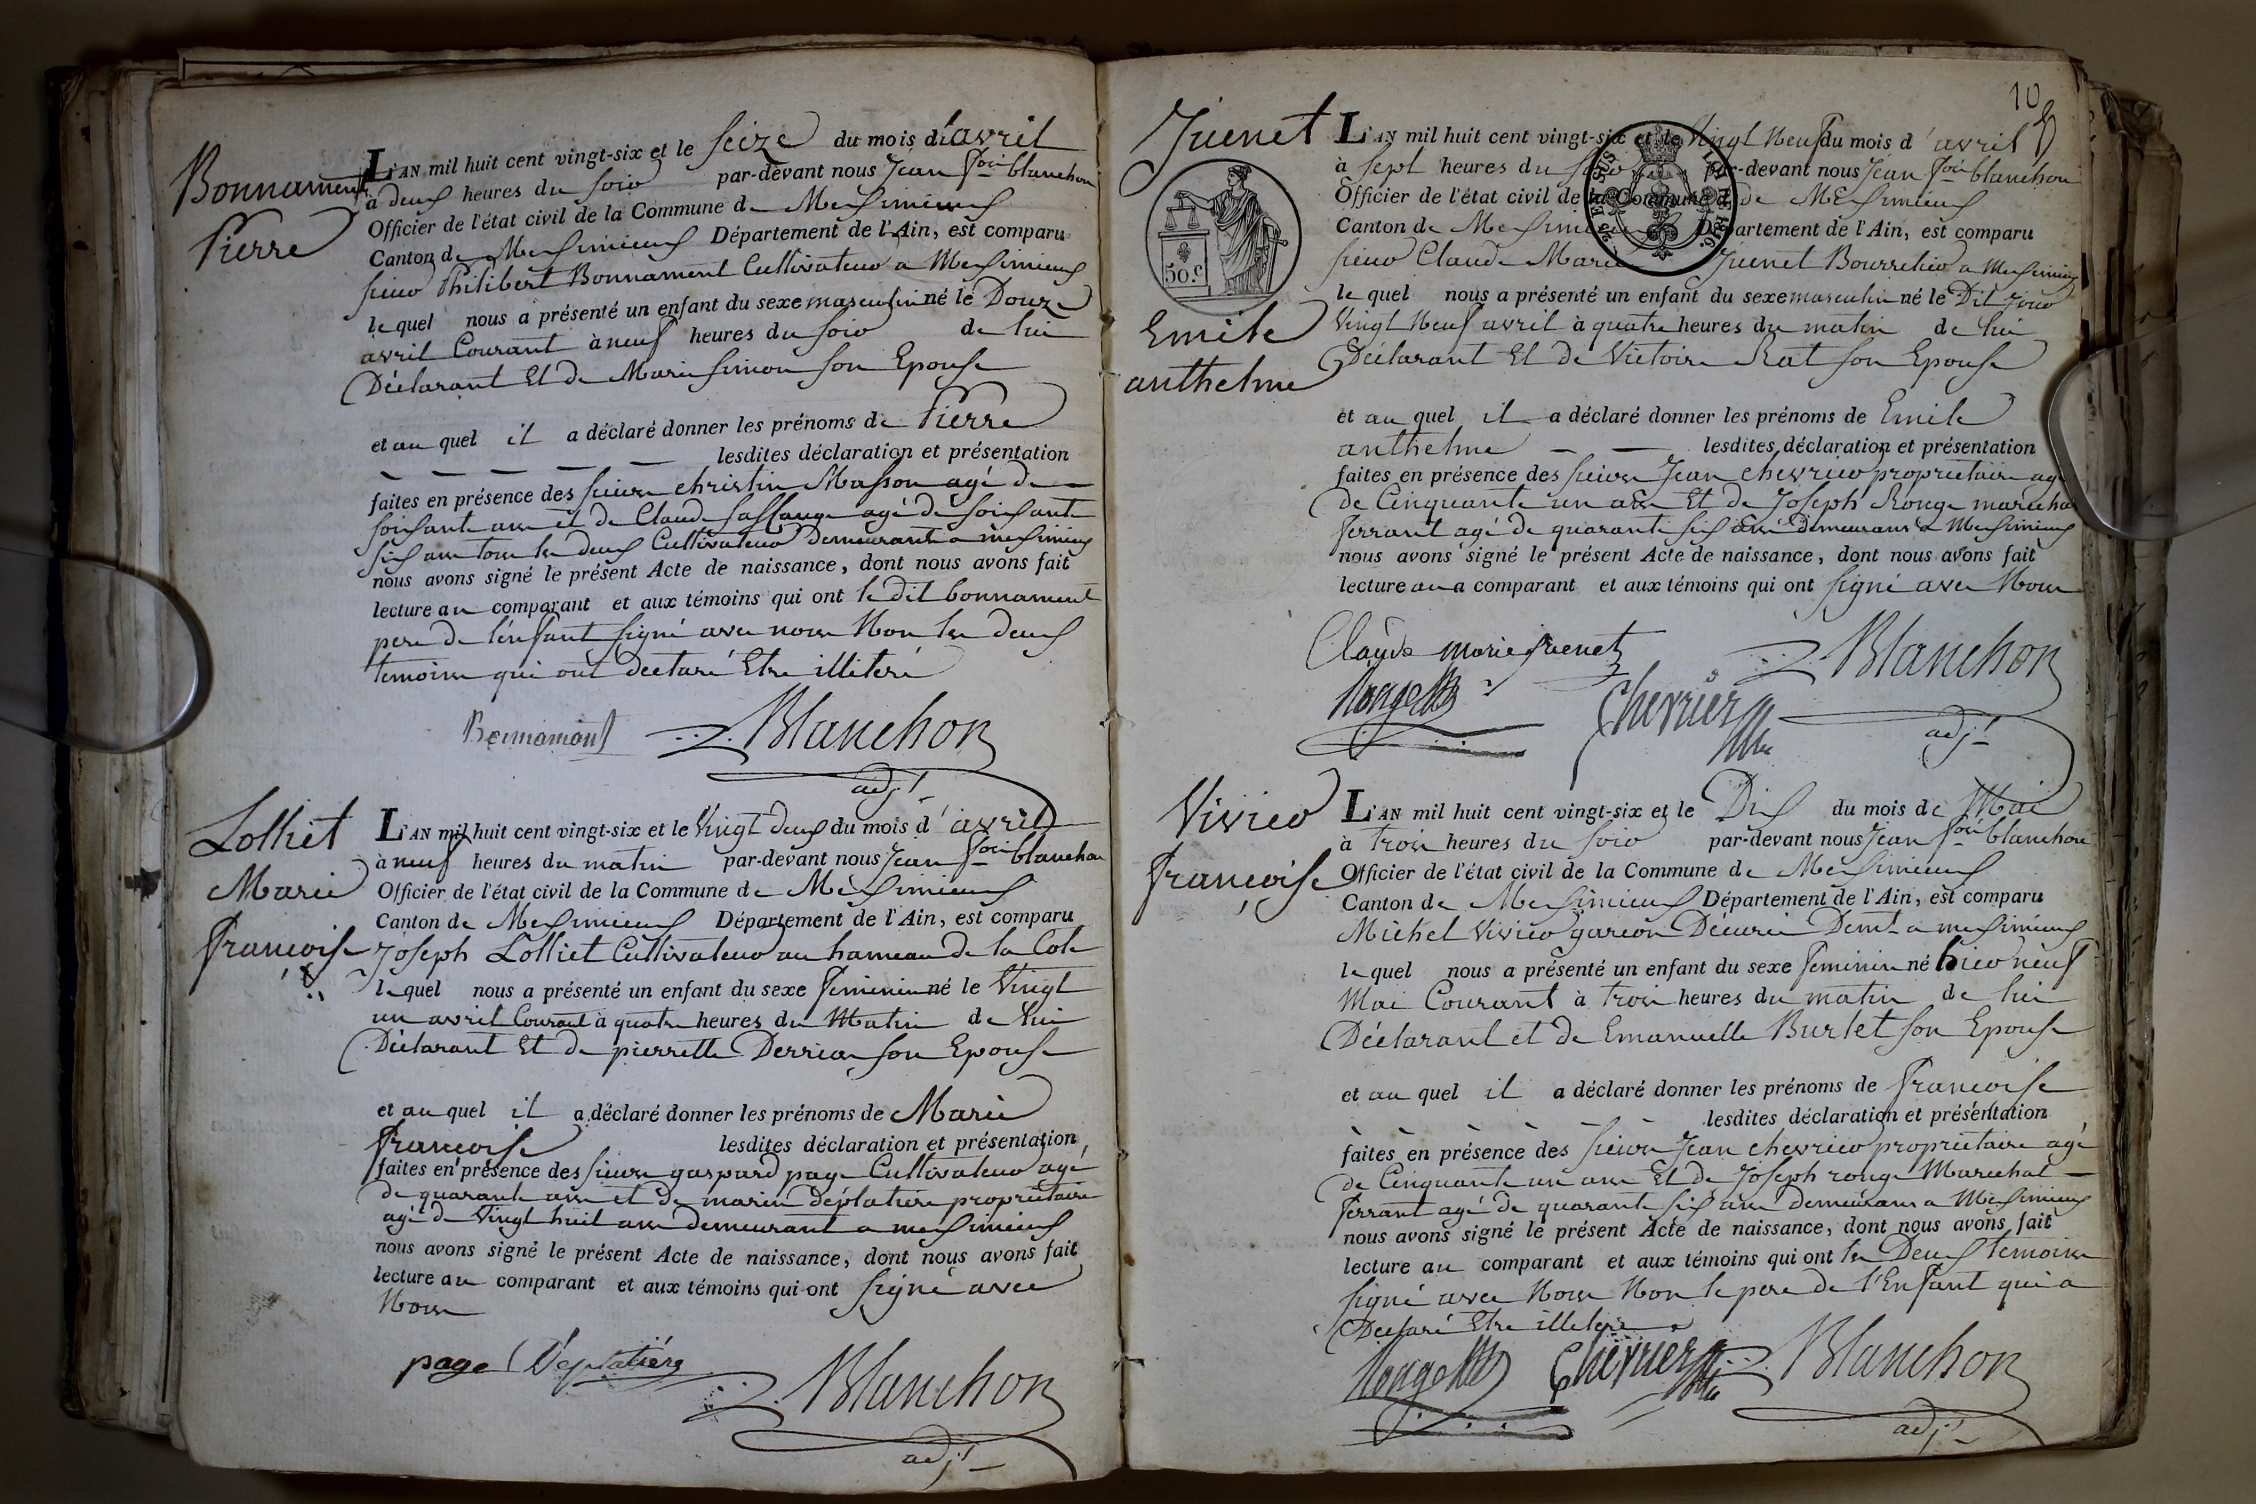 Bonnament
Pierre
L'AN mil huit cent vingt-six et le seize du mois d'avril
à deux heures du soir par-devant nous Jean fois blanchon
Officier de l'état civil de la Commune de Meximieux
Canton de Meximieux Département de l'Ain, est comparu
sieur Philibert Bonnament Cultivateur a Meximieux
le quel nous a présenté un enfant du sexe masculin né le Douze
avril Courant à neuf heures du soir de lui
Déclarant Et de Marie simon son Epouse
et au quel il a déclaré donner les prénoms de Pierre
lesdites déclaration et présentation
faites en présence des sieurs christin Masson agé de
soixante ans et de Claude agé de soixante
six ans tous les deux Cultivateurs demeurant a meximieux
nous avons signé le présent Acte de naissance, dont nous avons fait
lecture au comparant et aux témoins qui ont le dit bonnament
pere de l'enfant signé avec nous Non les deux
temoins qui ont declaré Etre illiteré
Bonnamont Blanchon
adjt
Lolliet
Marie
françoise
L'AN mil huit cent vingt-six et le Vingt deux du mois d'avril
à neuf heures du matin par-devant nous Jean fois blanchon
Officier de l'état civil de la Commune de Meximieux
Canton de Meximieux Département de l'Ain, est comparu
Joseph Lolliet Cultivateur au hameau de la Cote
le quel nous a présenté un enfant du sexe feminin né le Vingt
un avril Courant à quatre heures du Matin de lui
Déclarant Et de pierrette Derrias son Epouse
et au quel il a déclaré donner les prénoms de Marie
françoise lesdites déclaration et présentation
faites en présence des sieurs gaspard page Cultivateur agé
de quarante ans et de marin déplatière propriétaire
agé de Vingt huit ans demeurant a meximieux
nous avons signé le présent Acte de naissance, dont nous avons fait
lecture au comparant et aux témoins qui ont signé avec
Nous
page Déplatière Blanchon
adjt
10
Juenet
50.c
Emile
anthelme
L'AN mil huit cent vingt-six et le Vingt Neuf du mois d'avril
à sept heures du soir par-devant nous Jean fois blanchon
Officier de l'état civil de la Commune de Meximieux
Canton de Meximieux Département de l'Ain, est comparu
sieur Claude Marie Juenet Bourrelier a Meximieux
le quel nous a présenté un enfant du sexe masculin né le Dit jour
Vingt Neuf avril à quatre heures du matin de lui
Déclarant Et de Victoire Rat son Epouse
et au quel il a déclaré donner les prénoms de Emile
anthelme lesdites déclaration et présentation
faites en présence des sieurs Jean chevrier propriétaire agé
de Cinquante un ans Et de Joseph Rouge maréchal
ferrant agé de quarante six ans demeurans a Meximieux
nous avons signé le présent Acte de naissance, dont nous avons fait
lecture au comparant et aux témoins qui ont signé avec Nous
Claude marie juenet Blanchon
Rouge Chevrier
adjt
Vivier
françoise
L'AN mil huit cent vingt-six et le Dix du mois de Mai
à trois heures du soir par-devant nous Jean fois blanchon
Officier de l'état civil de la Commune de Meximieux
Canton de Meximieux Département de l'Ain, est comparu
Michel Vivier garçon Decurie Demt a meximieux
le quel nous a présenté un enfant du sexe feminin né hier neuf
Mai Courant à trois heures du matin de lui
Déclarant et de Emanuelle Burlet son Epouse
et au quel il a déclaré donner les prénoms de françoise
lesdites déclaration et présentation
faites en présence des sieurs Jean chevrier propriétaire agé
de Cinquante un ans Et de Joseph rouge Marechal
ferrant agé de quarante six ans demeurans a Meximieux
nous avons signé le présent Acte de naissance, dont nous avons fait
lecture au comparant et aux témoins qui ont les Deux temoins
signé avec Nous Non le pere de l'Enfant qui a
Declaré Etre illiteré
Rouge Chevrier Blanchon
adjt